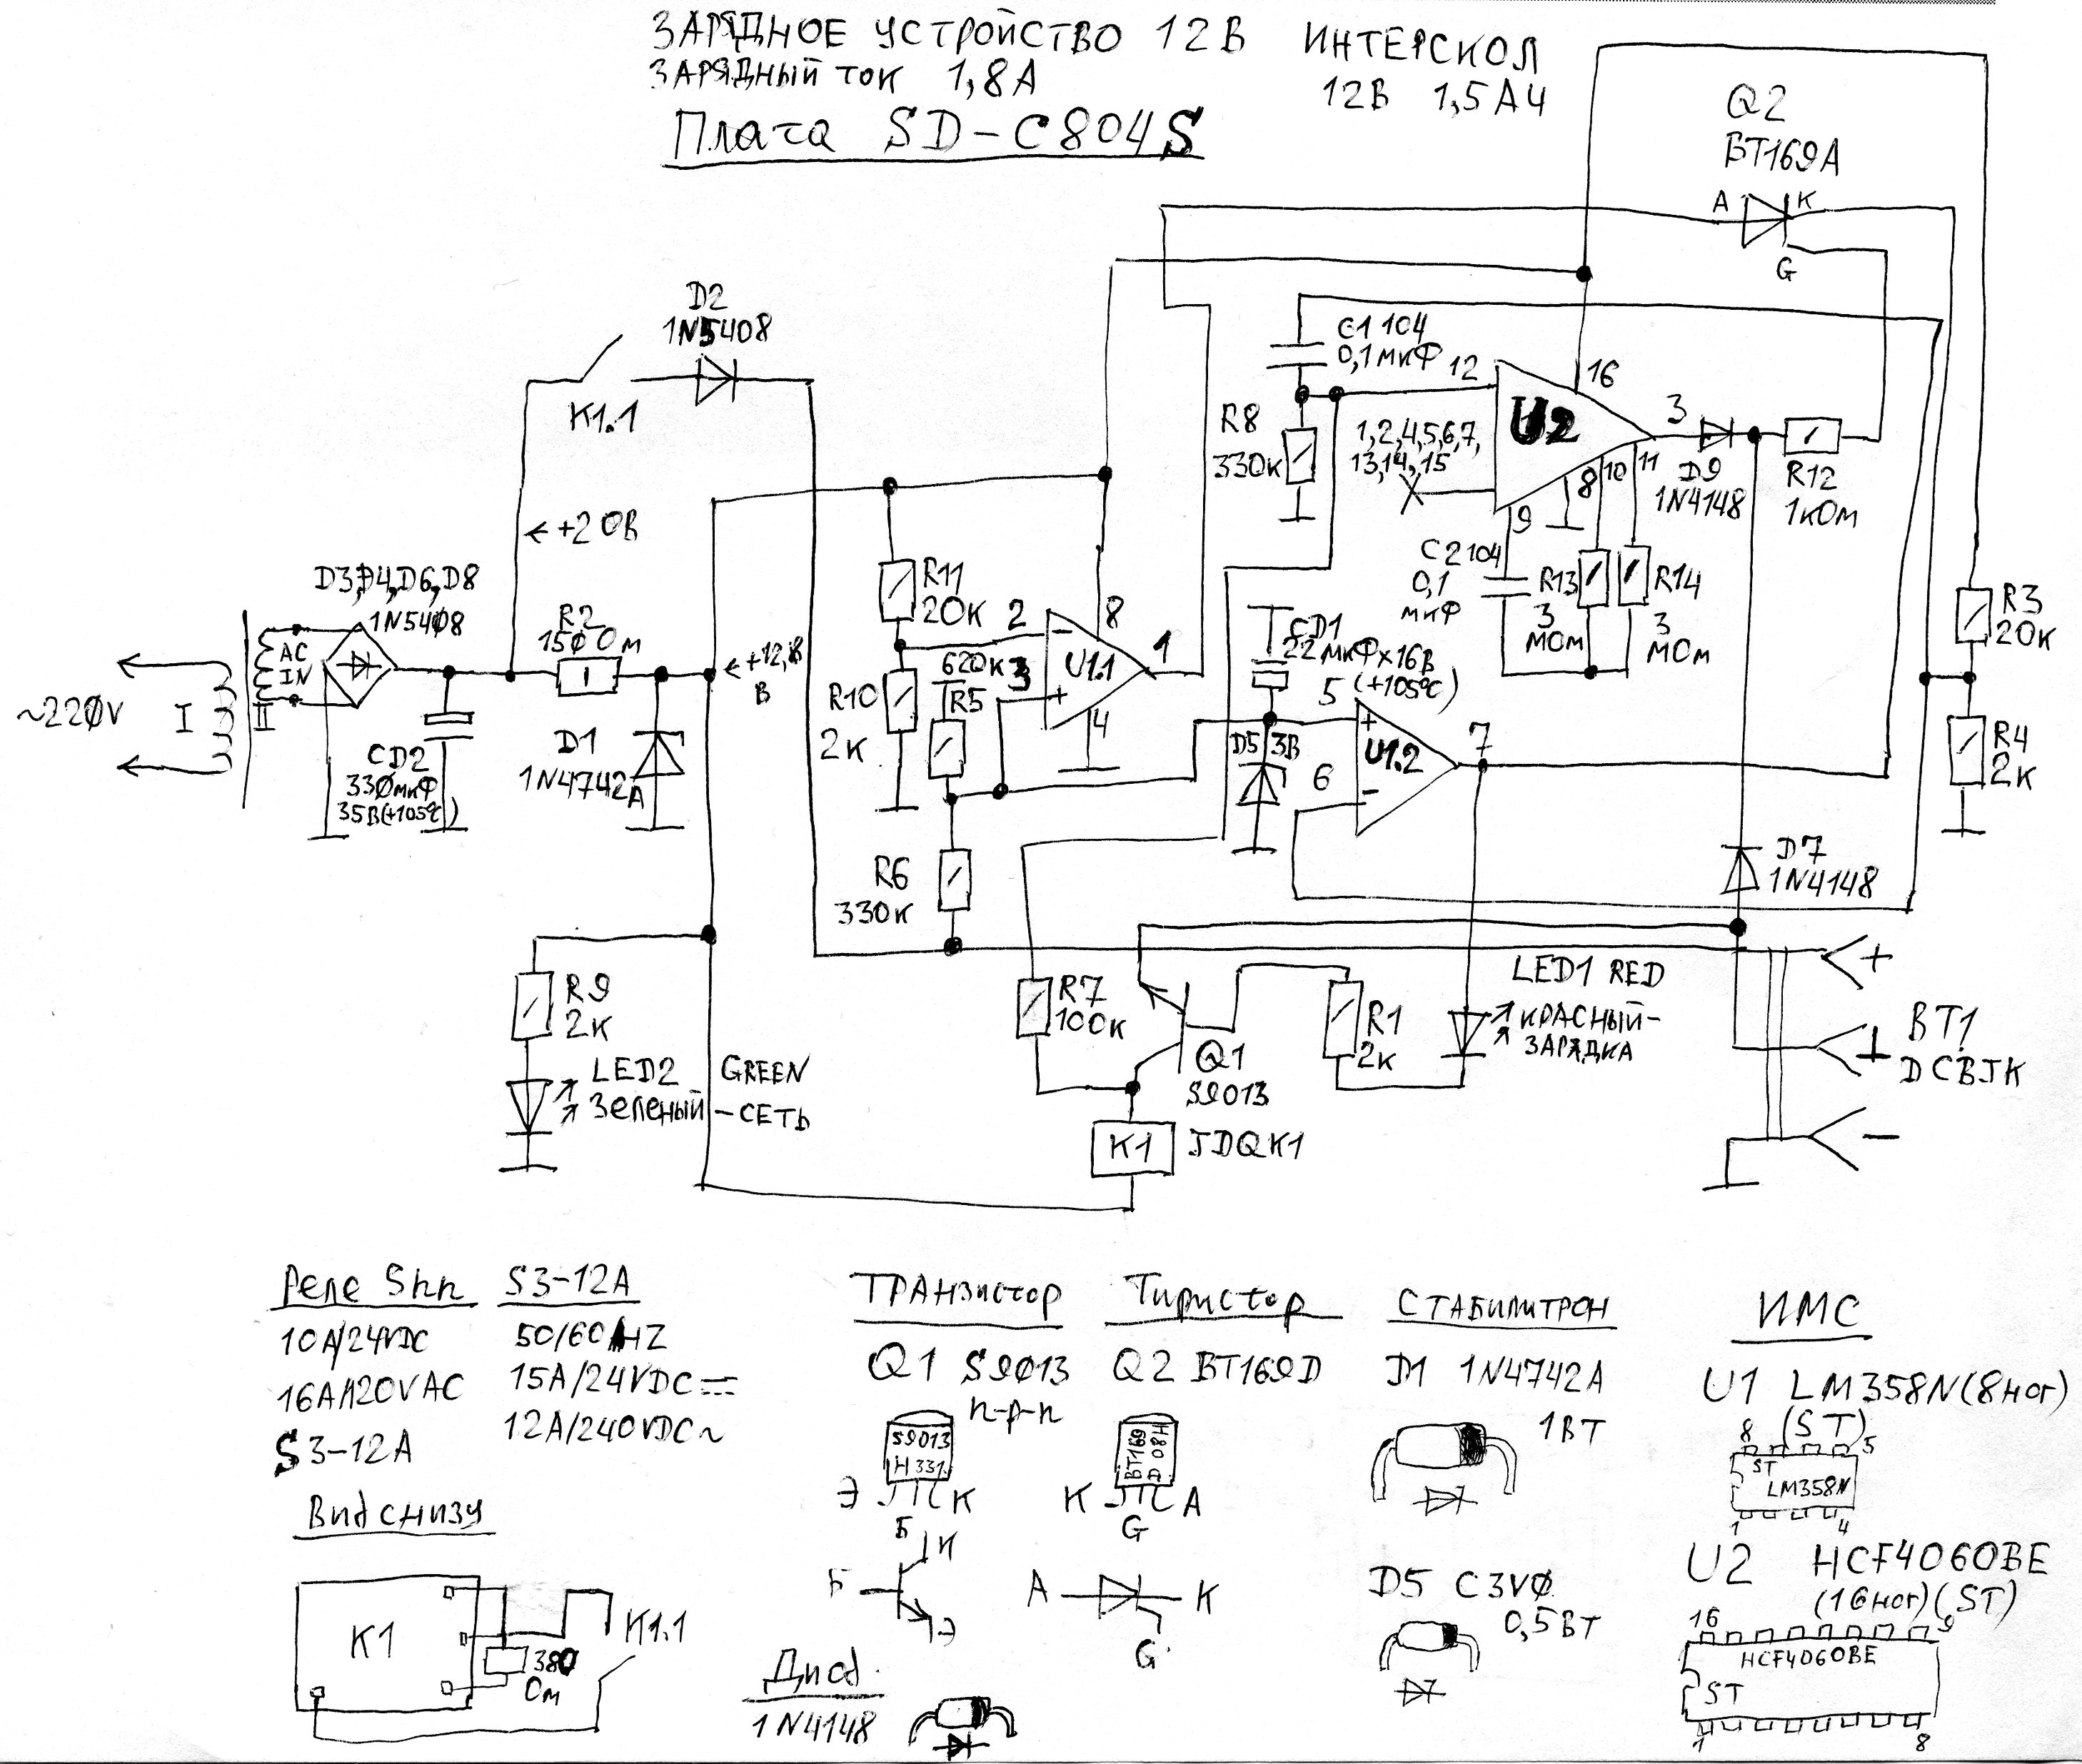 ЗАРЯДНОЕ УСТРОЙСТВО 12В ИНТЕРСКОЛ
ЗАРЯДНЫЙ ТОК 1,8А 12В 1,5АЧ
Плата SD-C804S
Q2
BT169A
A K
G
D2
1N5408
K1.1
←+20В
C1 104
0,1мкФ
12
16
U2
3
R8
330к
1,2,4,5,6,7,
13,14,15
8
10
11
9
D9
1N4148
R12
1кОм
C2 104
0,1
мкФ
R13
3
МОм
R14
3
МОм
R3
20к
R4
2к
D3,D4,D6,D8
1N5408
R2
150Ом
~220V
I
II
AC
IN
CD2
330мкФ
35В(+105°C)
D1
1N4742A
←+12,8
В
R11
20к
R10
2к
620к
R5
2
3
8
1
4
U1.1
CD1
22мкФх16В
(+105°C)
D5
3В
5
6
7
U1.2
R6
330к
D7
1N4148
R9
2к
LED2 GREEN
Зеленый-СЕТЬ
R7
100к
Q1
S9013
R1
2к
LED1 RED
КРАСНЫЙ-
ЗАРЯДКА
K1
JDQK1
+
⊥
−
BT1
DCBJK
Реле Shn S3-12A
10A/24VDC 50/60HZ
16A/120VAC 15A/24VDC
S3-12A 12A/240VDC~
Вид снизу
K1
K1.1
380
Ом
ТРАНзистор
Q1 S9013
n-p-n
S9013
H331
Э К
Б
К
Б
Э
Тиристор
Q2 BT169D
BT169
D 08H
K A
G
A K
G
Диод
1N4148
СТАБИЛИТРОН
D1 1N4742A
1ВТ
D5 C3V0
0,5ВТ
ИМС
U1 LM358N(8ног)
(ST)
8 5
ST
LM358N
1 4
U2 HCF4060BE
(16ног)(ST)
16 9
HCF4060BE
ST
1 8